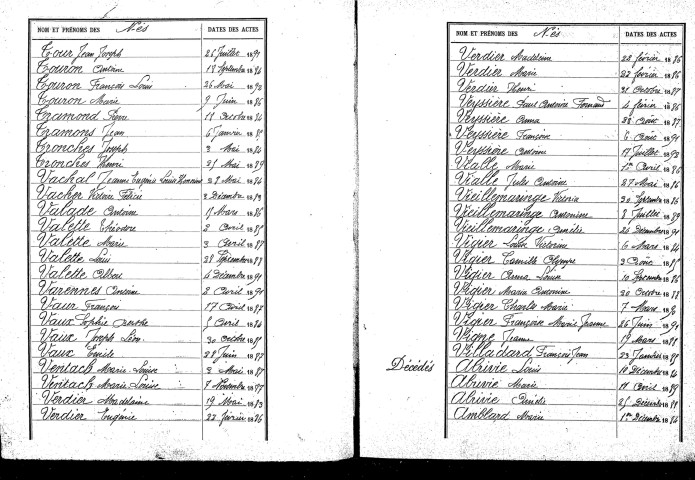 NOM ET PRÉNOMS DES Nés DATES DES ACTES
Tour Jean Joseph 26 Juillet 1891
Touron Antoine 18 Septembre 1884
Touron François Louis 26 Mai 1890
Touron Marie 9 Juin 1886
Tramond Pierre 18
Tramons Jean 6 Janvier 188
Tronches Joseph 3 Mai 1884
Tronches Henri 25 Mai 1889
Vachal Jeanne Eugénie Louise 28 Mai 1884
Vacher Victoire Félicie 2 Décembre 1883
Valade Antoine 17 Mars 1886
Valette Théodore 2 Avril 188
Valette Marie 3 Avril 1887
Valette Louis 28 Septembre 1887
Valette Albert 4 Décembre 1891
Varennes Antoine 2 Avril 1891
Vaur François 17 Avril 1887
Vaux Sophie Marthe Avril 1884
Vaux Joseph Léon 30 Octobre 188
Vaux Cécile 28 Juin 1887
Ventach Marie Louise 2 Mai 1887
Ventach Marie Louise 7 Novembre 1897
Verdier Madeleine 19 Mai 1883
Verdier Eugénie 22 Février 1886
NOM ET PRÉNOMS DES Nés DATES DES ACTES
Verdier Madeleine 22 février 1886
Verdier Marie 22 février 1886
Verdier Henri 31 Octobre 1887
Veyssière Paul Antoine Fernand 4 février 1886
Veyssière Anna 28 Août 188
Veyssière Françoise 6 Août 1891
Veyssière Antoine 17 Juillet 1893
Vialle Marie 1er Avril 1886
Vialle Jules Antoine 27 Mai 1886
Vieillemaringe Victoria 30 Septembre 1886
Vieillemaringe Antonine 8 Juillet 1889
Vieillemaringe Amélie 26 Décembre 1891
Vigier Victorine 6 Mars 1884
Vigier Camille Olympe 3 Août 188
Vigier Anna Louise 10 Septembre 1886
Vigier Maria Antonine 30 Octobre 1888
Vigier Charles Marie 7 Mars 189
Vigier Françoise Marie Jeanne 26 Juin 1891
Vigne Jeanne 17 Mars 188
Villadard François Jean 23 Janvier 1891
Décédés
Abrivie Louis 10 Décembre 1884
Abrivie Marie 11 Avril 1889
Abrivie Amélie 25 Décembre 1891
Amblard Marie 1er Décembre 1884